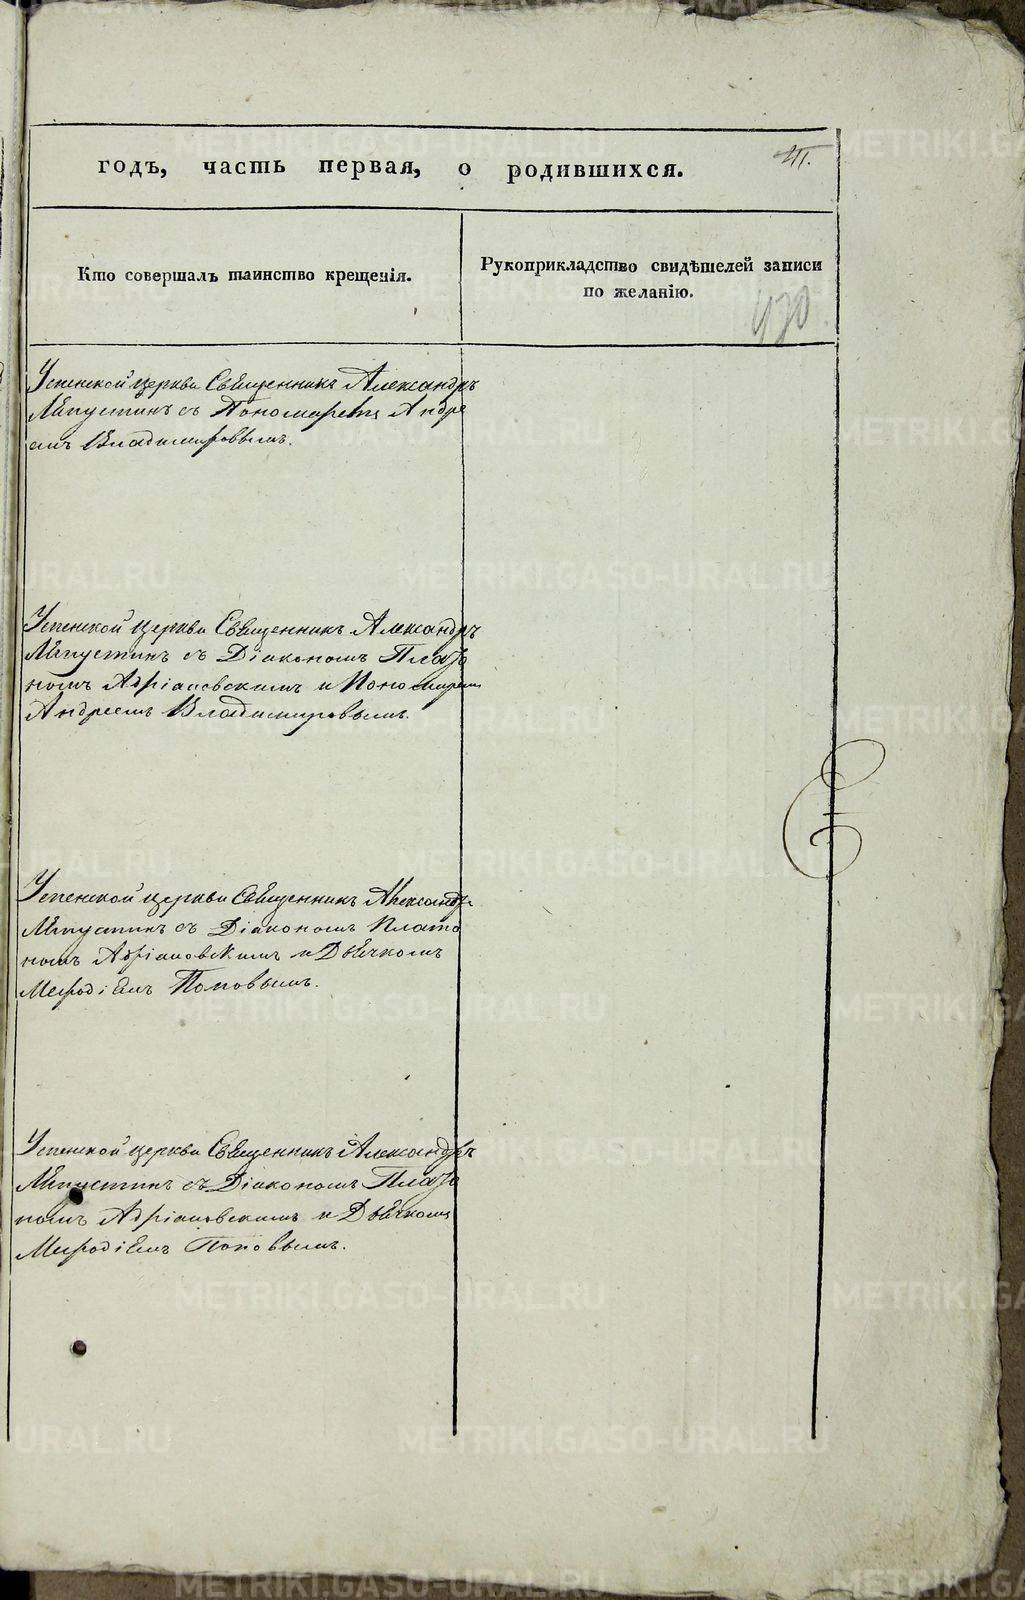 годъ, часть первая, о родившихся.
Кто совершалъ таинство крещенія.
Рукоприкладство свидѣтелей записи
по желанію.
430
Успенской церкви Священникъ Александръ
съ Пономаремъ Андре
емъ Владимировымъ.
Успенской церкви Священникъ Александръ
съ Діакономъ Плато
номъ Адріановскимъ и Пономаремъ
Андреемъ Владимировымъ.
Успенской церкви Священникъ Александръ
съ Діакономъ Плато
номъ Адріановскимъ и Дьячкомъ
Меѳодіемъ Поповымъ.
Успенской церкви Священникъ Александръ
съ Діакономъ Плато
номъ Адріановскимъ и Дьячкомъ
Меѳодіемъ Поповымъ.
METRIKI.GASO-URAL.RU